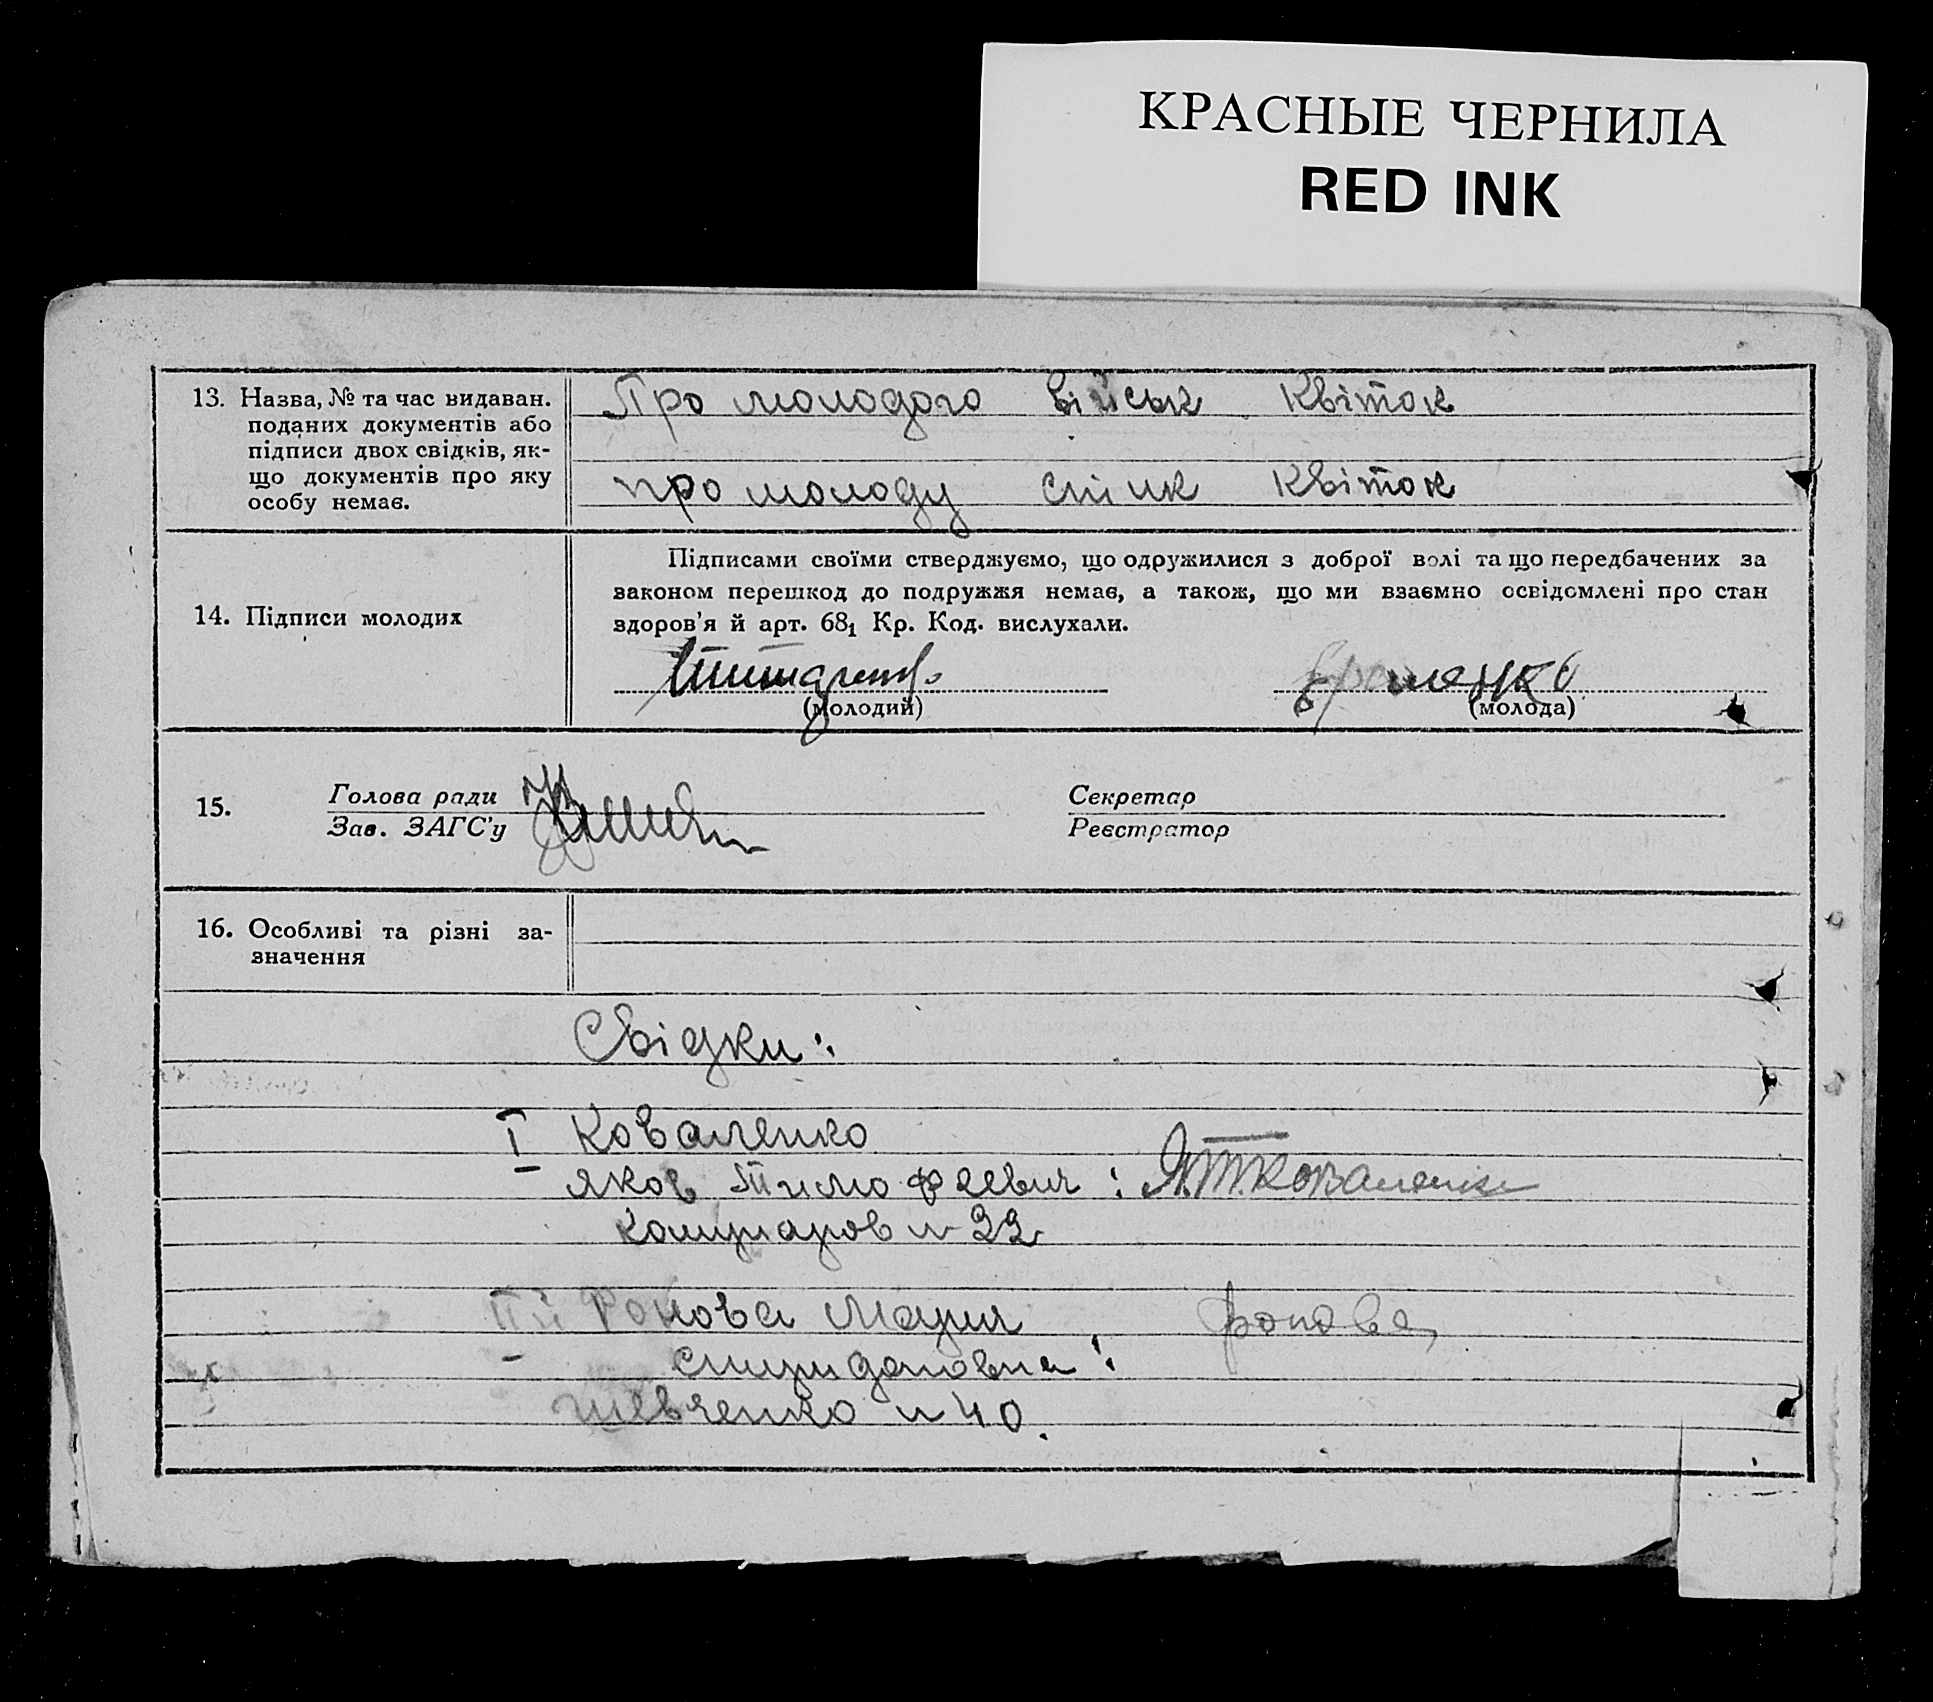 КРАСНЫЕ ЧЕРНИЛА
RED INK
13. Назва, № та час видаван.
поданих документів або
підписи двох свідків, як-
що документів про яку
особу немає.
Про молодого військ квіток
про молоду спілк квіток
14. Підписи молодих
Підписами своїми стверджуємо, що одружилися з доброї волі та що передбачених за
законом перешкод до подружжя немає, а також, що ми взаємно освідомлені про стан
здоров'я й арт. 68₁ Кр. Код. вислухали.
(молодий)
(молода)
15.
Голова ради
Зав. ЗАГС'у
Секретар
Реєстратор
16. Особливі та різні за-
значення
Свідки:
I Коваленко
яков Тимофеевич : Я.Т. Коваленко
№ 22
II й Фонова Мария Фонова
спиридоновна :
Шевченко № 40.